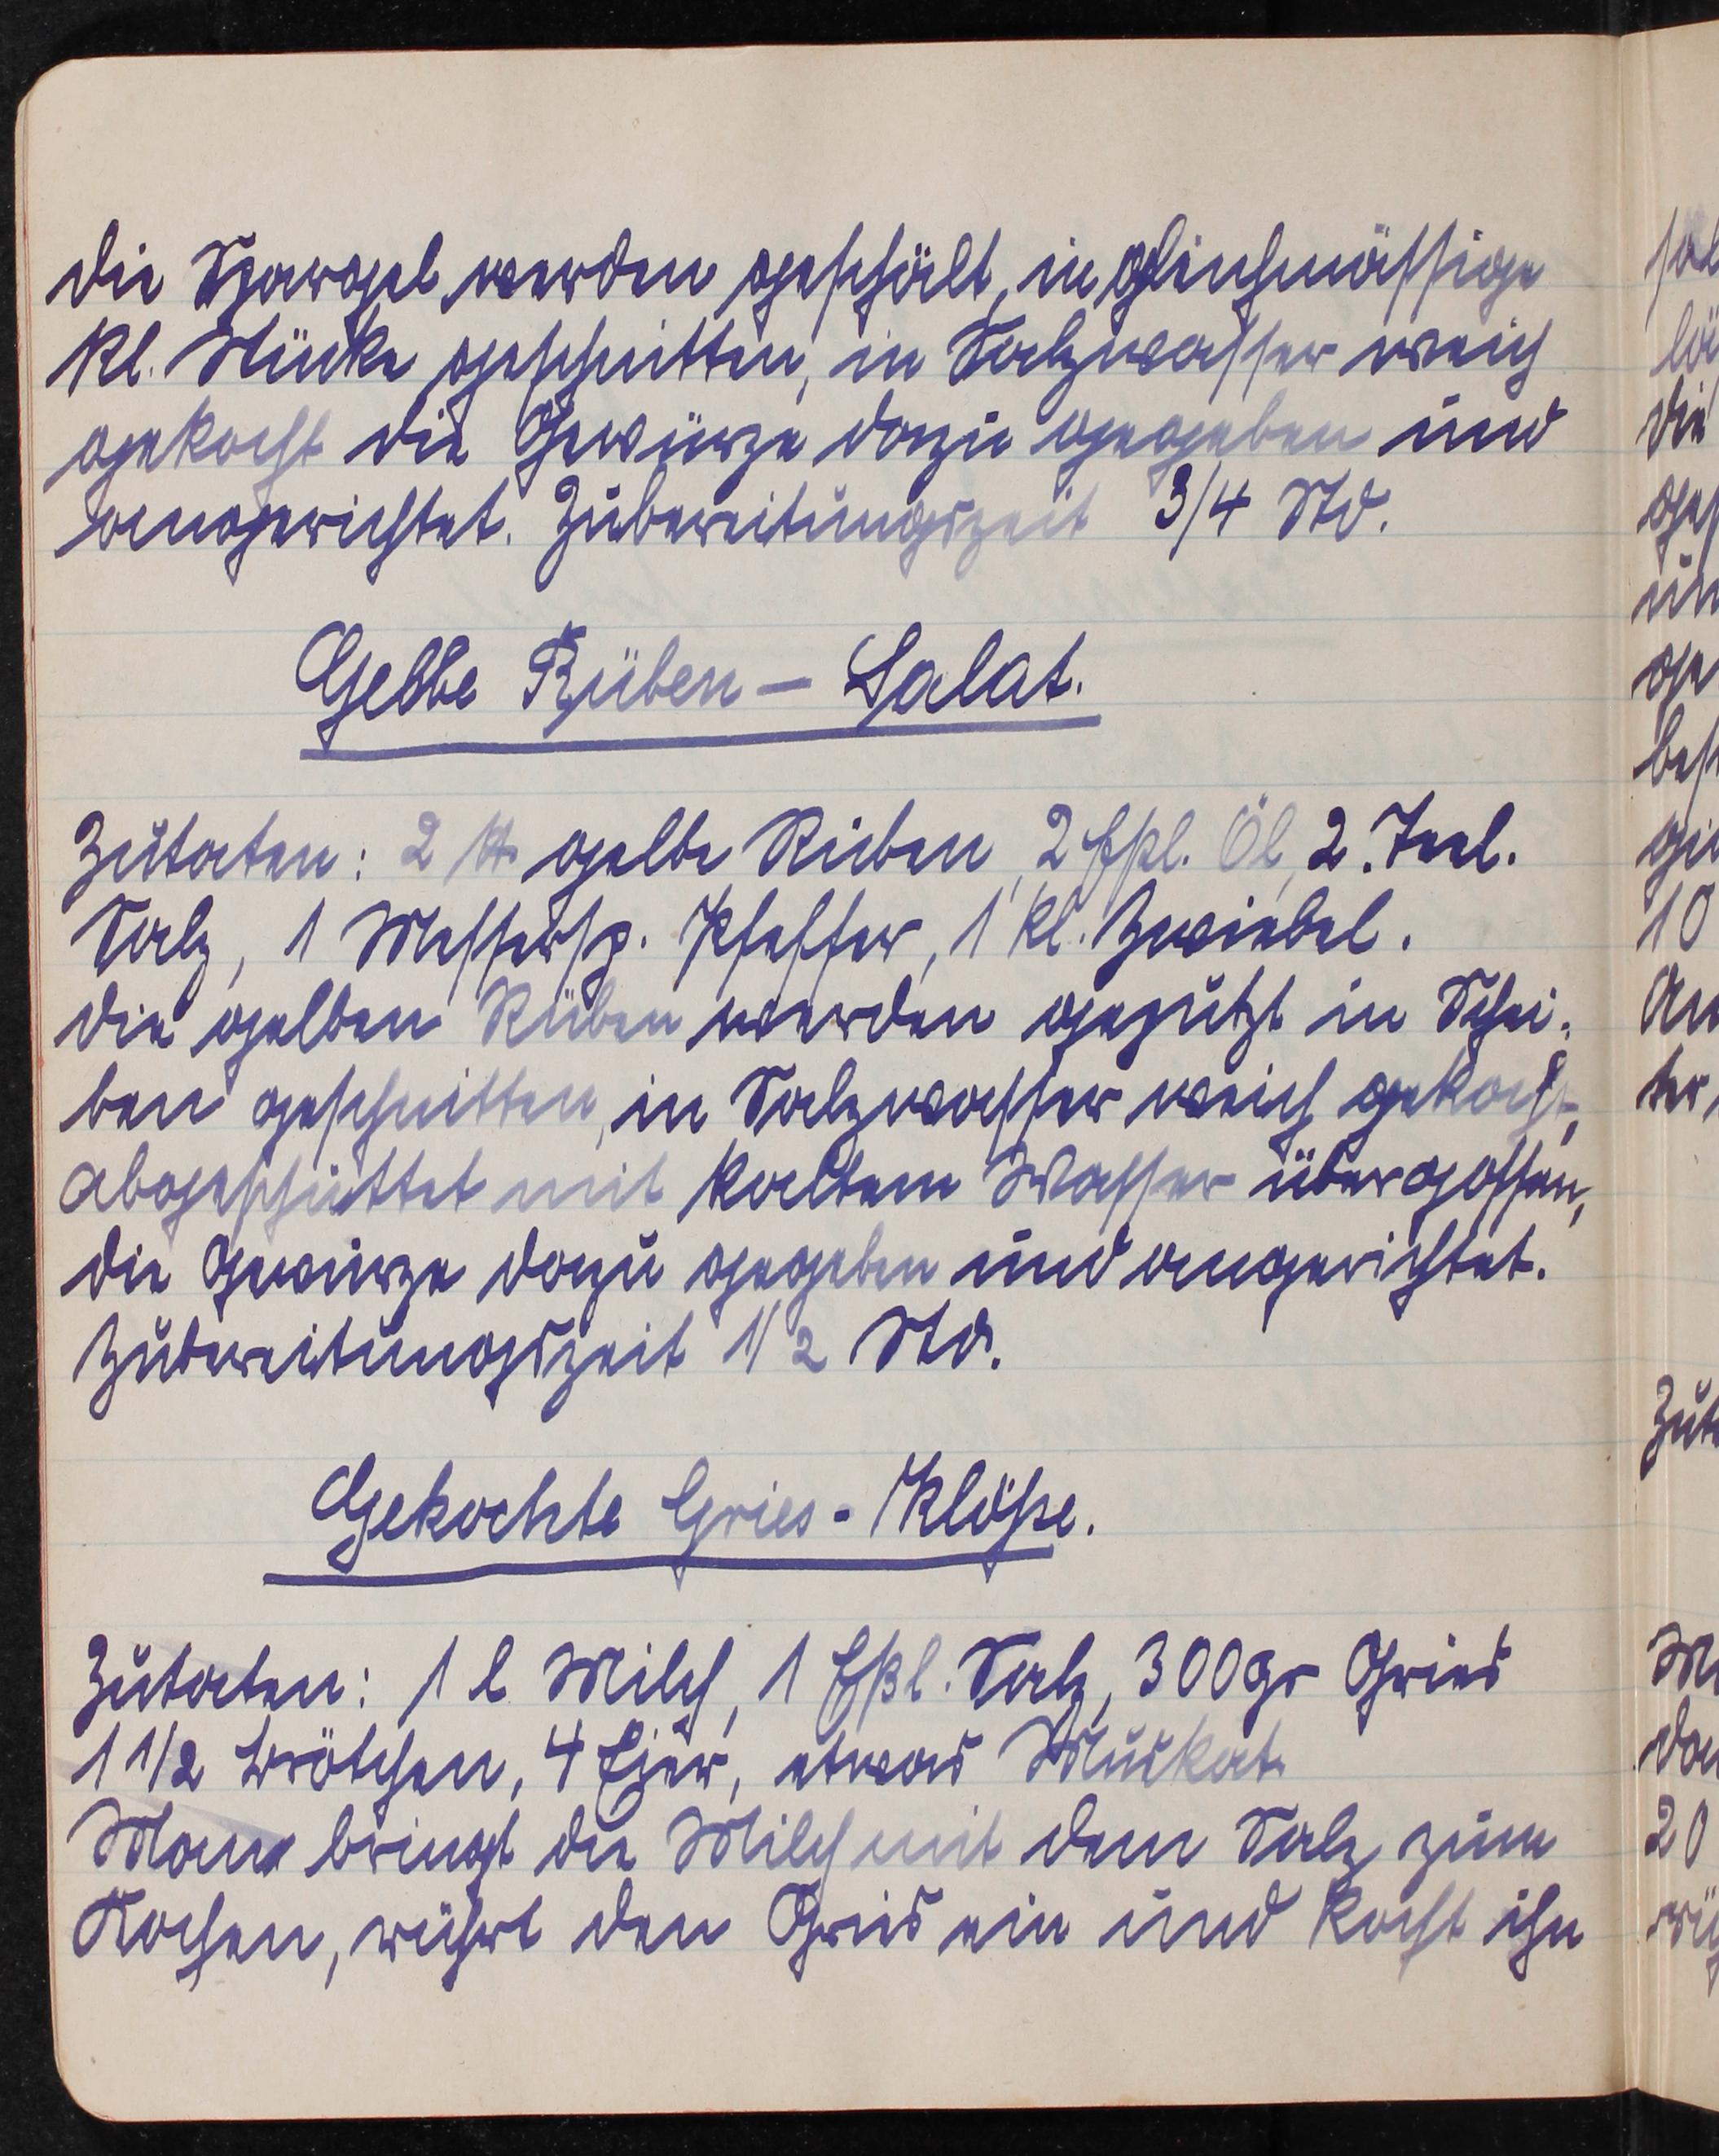 die Spargel werden geschält, in gleichmässige
kl. Stücke geschnitten, in Salzwasser weich
gekocht die Gewürze dazu gegeben und
angerichtet. Zubereitungszeit 3/4 Std.
Gelbe Rüben – Salat.
Zutaten: 2 ℔ gelbe Rüben, 2 Eßl. Öl, 2. Teel.
Salz, 1 Messersp. Pfeffer, 1 kl. Zwiebel.
die gelben Rüben werden geputzt in Schei-
ben geschnitten, in Salzwasser weich gekocht,
abgeschüttet mit kaltem Wasser übergossen,
die Gewürze dazu gegeben und angerichtet.
Zubereitungszeit 1/2 Std.
Gekochte Gries - Klöße.
Zutaten: 1 l Milch, 1 Eßl. Salz, 300gr Gries
1 1/2 Brötchen, 4 Eier, etwas Muskat.
Man bringt die Milch mit dem Salz zum
Kochen, rührt den Gries ein und kocht ihn
die
10
20